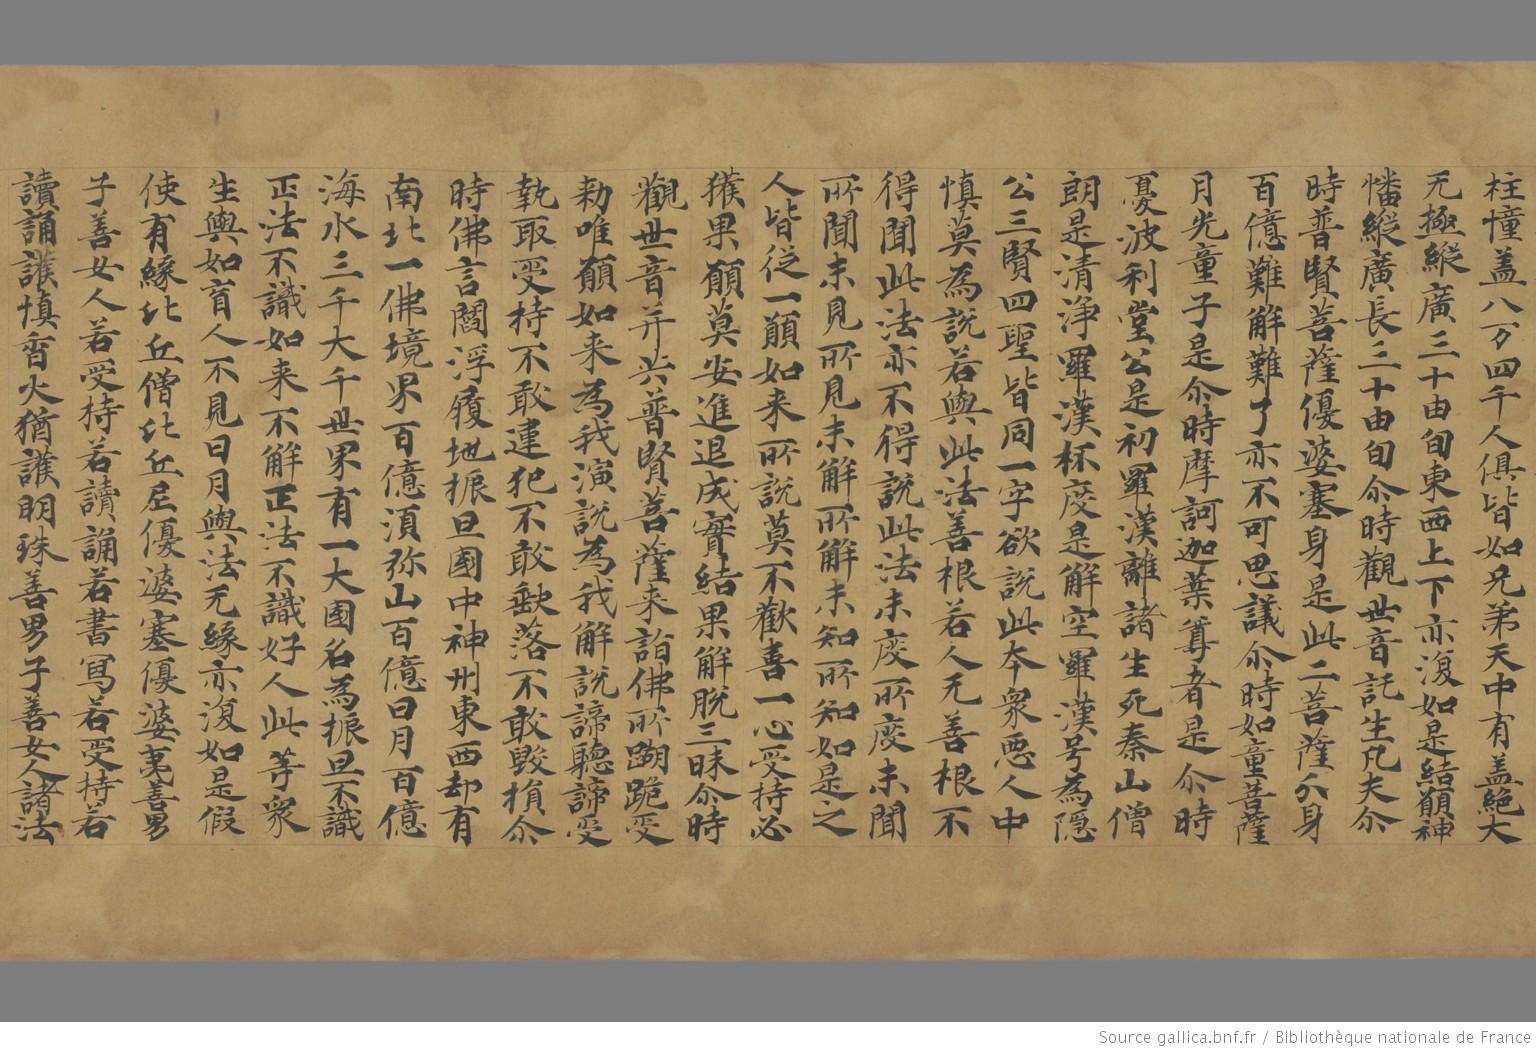 柱憧盖八万四千人俱皆如兄弟天中有盖絶大
无極縱廣三十由旬東西上下亦復如是結願神
幡縱廣長三十由旬尒時觀世音託生凡夫尒
時普賢菩薩優婆塞身是此二菩薩分身
百億難解難了亦不可思議尒時如童菩薩
月光童子是尒時摩訶迦葉尊者是尒時
憂波利堂公是初羅漢離諸生死泰山僧
朗是清浄羅漢杯度是解空羅漢号為隱
公三賢四聖皆同一字欲説此本衆惡人中
慎莫為説若與此法善根若人无善根不
得聞此法亦不得説此法未度所度未聞
所聞未見所見未解所解未知所知如是之
人皆從一願如来所説莫不歡喜一心受持必
獲果願莫安進退成實結果解脱三昧尒時
觀世音并共普賢菩薩来詣佛所蹋跪受
勅唯願如来為我演説為我解説諦聽諦受
執取受持不敢違犯不敢缺落不敢毀損尒
時佛言閻浮履地振旦國中神州東西却有
南北一佛境界百億須弥山百億日月百億
海水三千大千世界有一大國名為振旦不識
正法不識如来不解正法不識好人此等衆
生與如盲人不見日月與法无緣亦復如是假
使有緣比丘僧比丘尼優婆塞優婆夷善男
子善女人若受持若讀誦若書寫若受持若
讀誦護慎香火猶護明珠善男子善女人諸法
Source gallica.bnf.fr / Bibliothèque nationale de France